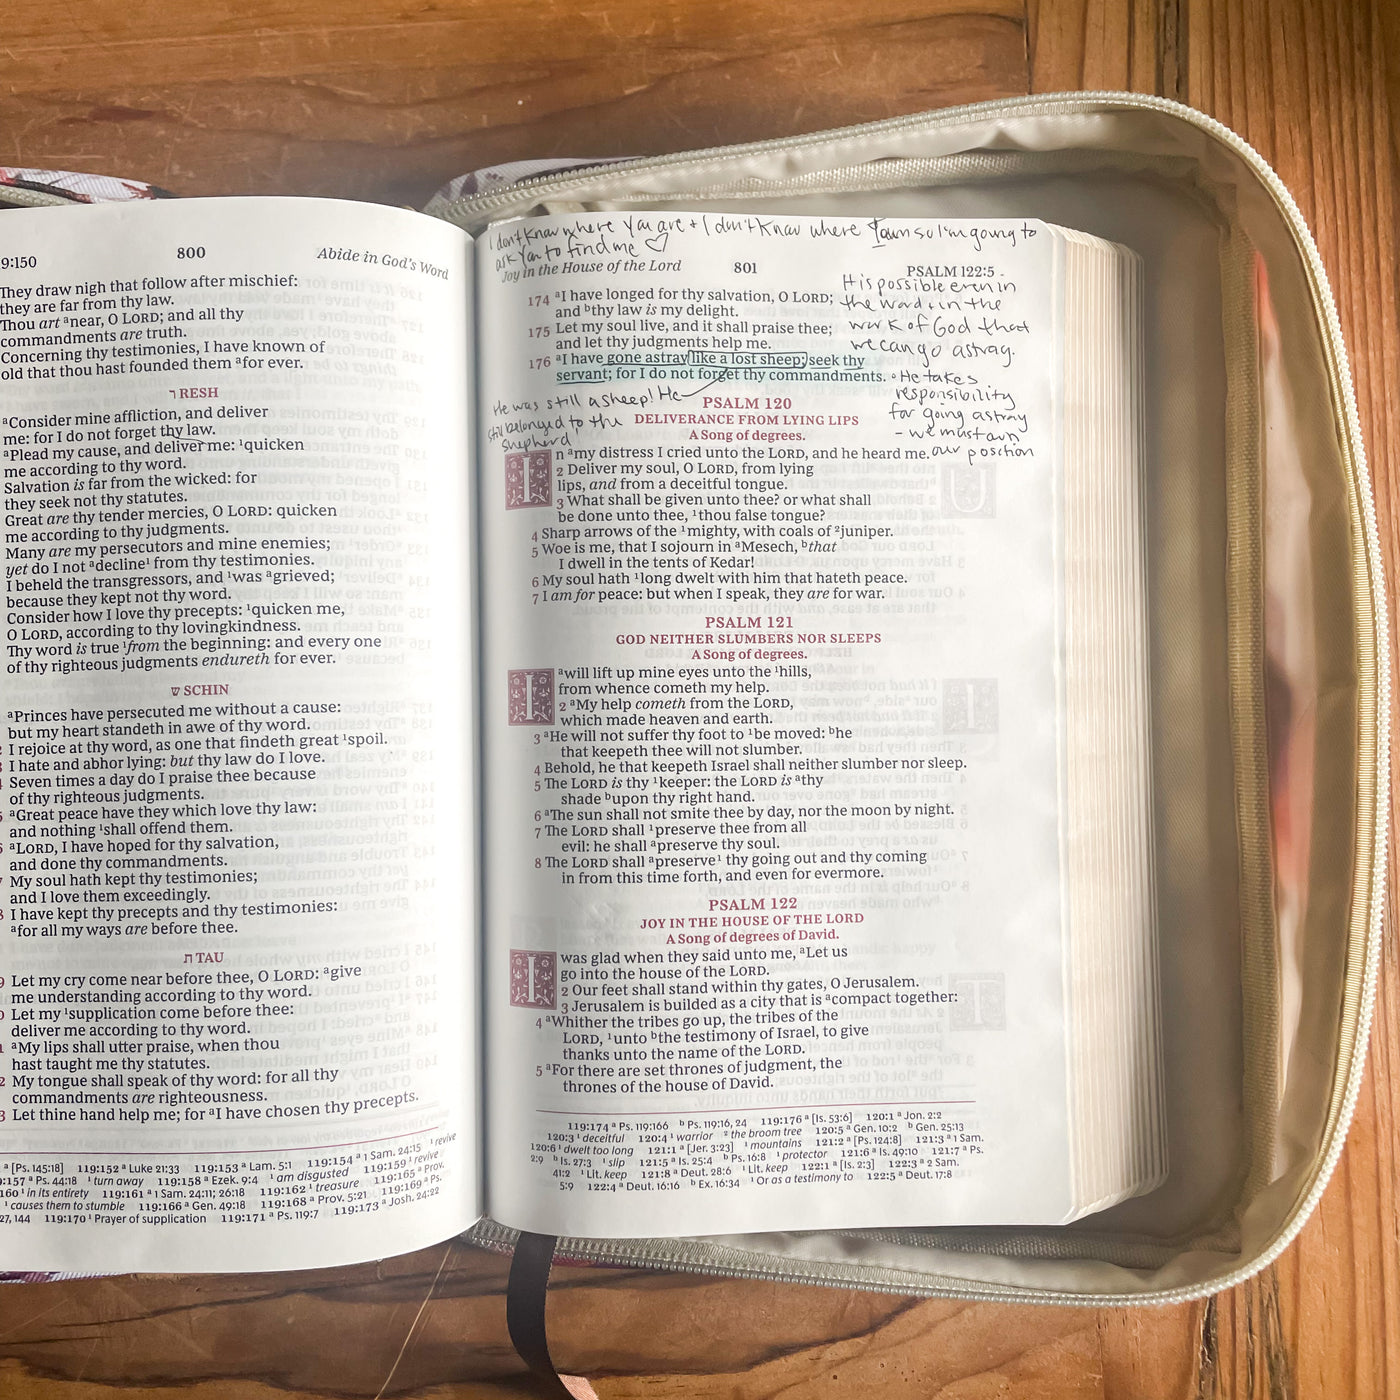 9:150 800 Abide in God's Word
They draw nigh that follow after mischief:
they are far from thy law.
Thou art ᵃnear, O LORD; and all thy
commandments are truth.
Concerning thy testimonies, I have known of
old that thou hast founded them ᵃfor ever.
ר RESH
ᵃConsider mine affliction, and deliver
me: for I do not forget thy law.
ᵃPlead my cause, and deliver me: ¹quicken
me according to thy word.
Salvation is far from the wicked: for
they seek not thy statutes.
Great are thy tender mercies, O LORD: quicken
me according to thy judgments.
Many are my persecutors and mine enemies;
yet do I not ᵃdecline¹ from thy testimonies.
I beheld the transgressors, and ¹was ᵃgrieved;
because they kept not thy word.
Consider how I love thy precepts: ¹quicken me,
O LORD, according to thy lovingkindness.
Thy word is true ¹from the beginning: and every one
of thy righteous judgments endureth for ever.
ש SCHIN
ᵃPrinces have persecuted me without a cause:
but my heart standeth in awe of thy word.
I rejoice at thy word, as one that findeth great ¹spoil.
I hate and abhor lying: but thy law do I love.
Seven times a day do I praise thee because
of thy righteous judgments.
ᵃGreat peace have they which love thy law:
and nothing ¹shall offend them.
ᵃLORD, I have hoped for thy salvation,
and done thy commandments.
My soul hath kept thy testimonies;
and I love them exceedingly.
I have kept thy precepts and thy testimonies:
ᵃfor all my ways are before thee.
ת TAU
Let my cry come near before thee, O LORD: ᵃgive
me understanding according to thy word.
Let my ¹supplication come before thee:
deliver me according to thy word.
ᵃMy lips shall utter praise, when thou
hast taught me thy statutes.
2 My tongue shall speak of thy word: for all thy
commandments are righteousness.
3 Let thine hand help me; for ᵃI have chosen thy precepts.
ᵃ [Ps. 145:18] 119:152 ᵃ Luke 21:33 119:153 ᵃ Lam. 5:1 119:154 ᵃ 1 Sam. 24:15 ¹ revive
9:157 ᵃ Ps. 44:18 ¹ turn away 119:158 ᵃ Ezek. 9:4 ¹ am disgusted 119:159 ¹ revive
160 ¹ in its entirety 119:161 ᵃ 1 Sam. 24:11; 26:18 119:162 ¹ treasure 119:165 ᵃ Prov.
¹ causes them to stumble 119:166 ᵃ Gen. 49:18 119:168 ᵃ Prov. 5:21 119:169 ᵃ Ps.
27, 144 119:170 ¹ Prayer of supplication 119:171 ᵃ Ps. 119:7 119:173 ᵃ Josh. 24:22
I don't know where You are + I don't know where I am so I'm going to
ask You to find me ♡
Joy in the House of the Lord 801 PSALM 122:5
174 ᵃI have longed for thy salvation, O LORD;
and ᵇthy law is my delight.
175 Let my soul live, and it shall praise thee;
and let thy judgments help me.
176 ᵃI have gone astray like a lost sheep; seek thy
servant; for I do not forget thy commandments.
It is possible even in
the word, in the
work of God that
we can go astray.
• He takes
responsibility
for going astray
- we must own
our position
He was still a sheep! He
still belonged to the
shepherd!
PSALM 120
DELIVERANCE FROM LYING LIPS
A Song of degrees.
In ᵃmy distress I cried unto the LORD, and he heard me.
2 Deliver my soul, O LORD, from lying
lips, and from a deceitful tongue.
3 What shall be given unto thee? or what shall
be done unto thee, ¹thou false tongue?
4 Sharp arrows of the ¹mighty, with coals of ²juniper.
5 Woe is me, that I sojourn in ᵃMesech, ᵇthat
I dwell in the tents of Kedar!
6 My soul hath ¹long dwelt with him that hateth peace.
7 I am for peace: but when I speak, they are for war.
PSALM 121
GOD NEITHER SLUMBERS NOR SLEEPS
A Song of degrees.
I ᵃwill lift up mine eyes unto the ¹hills,
from whence cometh my help.
2 ᵃMy help cometh from the LORD,
which made heaven and earth.
3 ᵃHe will not suffer thy foot to ¹be moved: ᵇhe
that keepeth thee will not slumber.
4 Behold, he that keepeth Israel shall neither slumber nor sleep.
5 The LORD is thy ¹keeper: the LORD is ᵃthy
shade ᵇupon thy right hand.
6 ᵃThe sun shall not smite thee by day, nor the moon by night.
7 The LORD shall ¹preserve thee from all
evil: he shall ᵃpreserve thy soul.
8 The LORD shall ᵃpreserve¹ thy going out and thy coming
in from this time forth, and even for evermore.
PSALM 122
JOY IN THE HOUSE OF THE LORD
A Song of degrees of David.
I was glad when they said unto me, ᵃLet us
go into the house of the LORD.
2 Our feet shall stand within thy gates, O Jerusalem.
3 Jerusalem is builded as a city that is ᵃcompact together:
4 ᵃWhither the tribes go up, the tribes of the
LORD, ¹unto ᵇthe testimony of Israel, to give
thanks unto the name of the LORD.
5 ᵃFor there are set thrones of judgment, the
thrones of the house of David.
119:174 ᵃ Ps. 119:166 ᵇ Ps. 119:16, 24 119:176 ᵃ [Is. 53:6] 120:1 ᵃ Jon. 2:2
120:3 ¹ deceitful 120:4 ¹ warrior ² the broom tree 120:5 ᵃ Gen. 10:2 ᵇ Gen. 25:13
120:6 ¹ dwelt too long 121:1 ᵃ [Jer. 3:23] ¹ mountains 121:2 ᵃ [Ps. 124:8] 121:3 ᵃ 1 Sam.
2:9 ᵇ Is. 27:3 ¹ slip 121:5 ᵃ Is. 25:4 ᵇ Ps. 16:8 ¹ protector 121:6 ᵃ Is. 49:10 121:7 ᵃ Ps.
41:2 ¹ Lit. keep 121:8 ᵃ Deut. 28:6 ¹ Lit. keep 122:1 ᵃ [Is. 2:3] 122:3 ᵃ 2 Sam.
5:9 122:4 ᵃ Deut. 16:16 ᵇ Ex. 16:34 ¹ Or as a testimony to 122:5 ᵃ Deut. 17:8